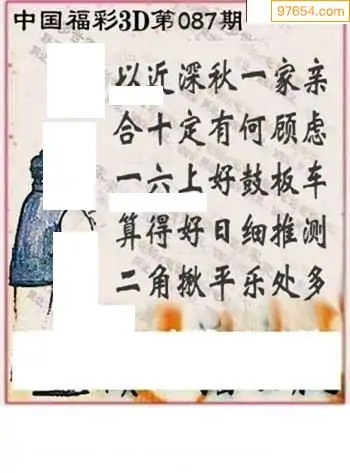 97654.com
中国福彩3D第087期
以近深秋一家亲
合十定有何顾虑
一六上好鼓板车
算得好日细推测
二角揪平乐处多